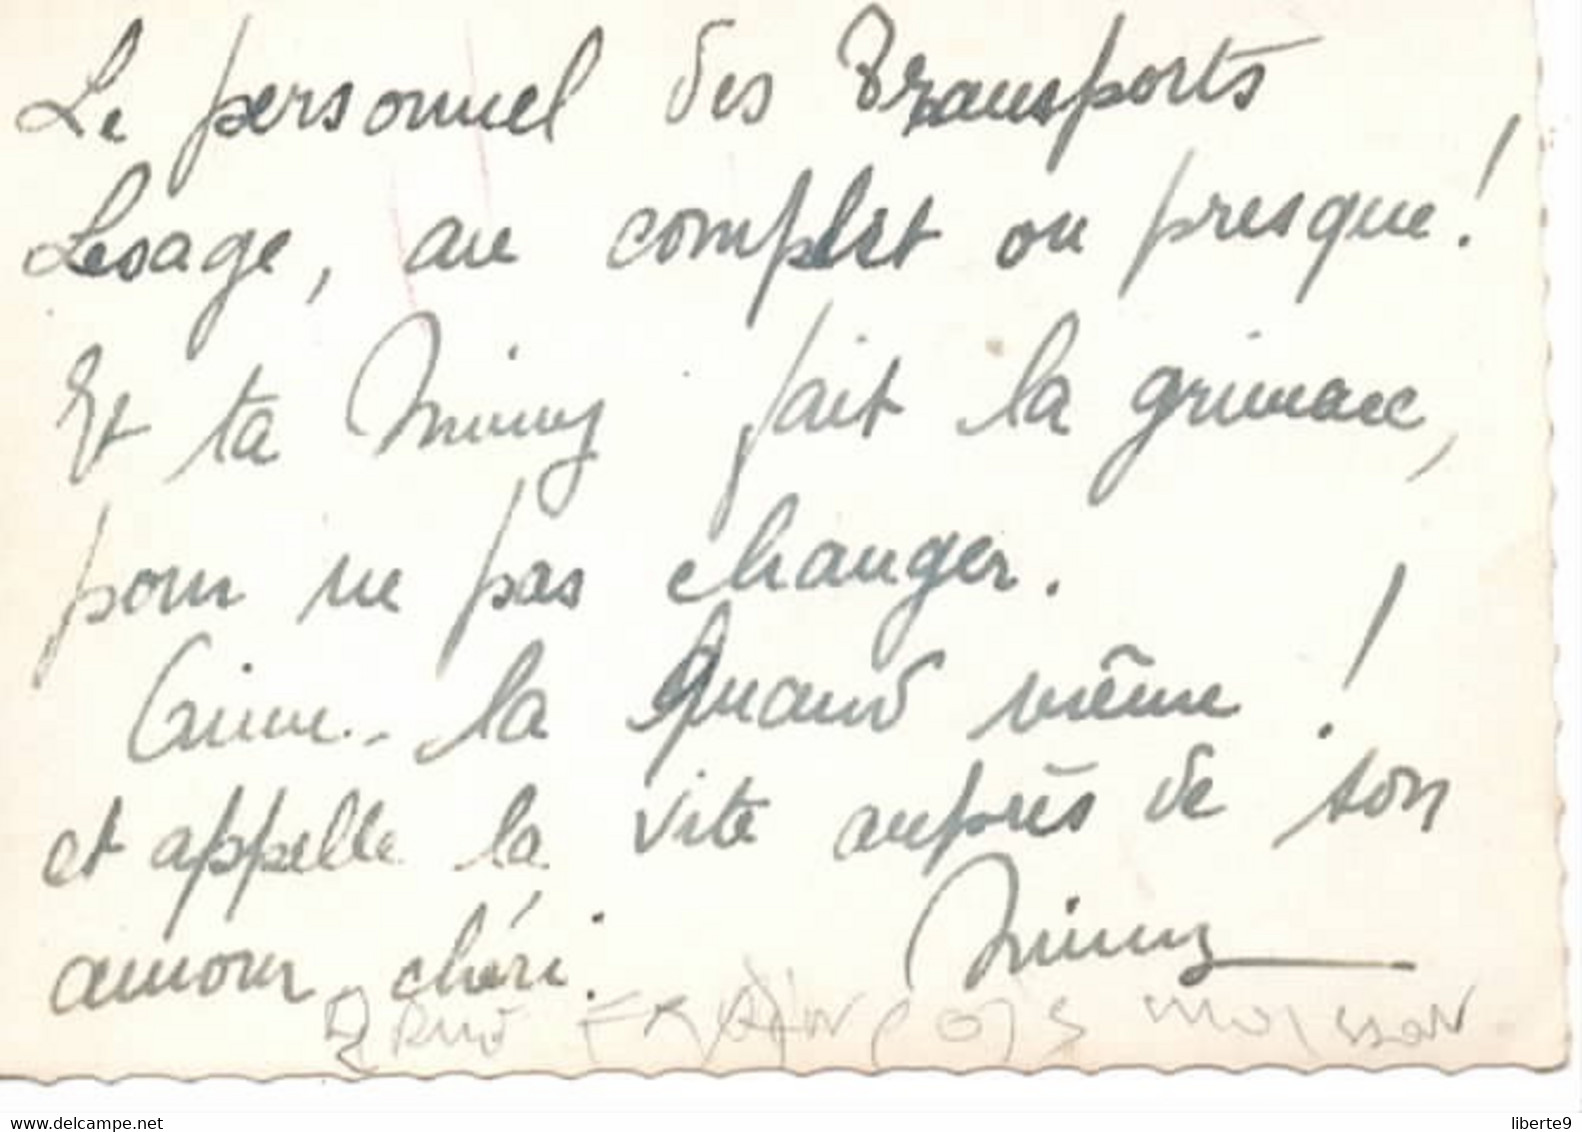 Le personnel des Transports
Lesage, au complet ou presque!
Et ta Mimy fait la grimace,
pour ne pas changer.
Aime-la Quand même!
et appelle la vite auprès de son
amour chéri. Mimy
FRANÇOIS MOISSON
www.delcampe.net
liberte9